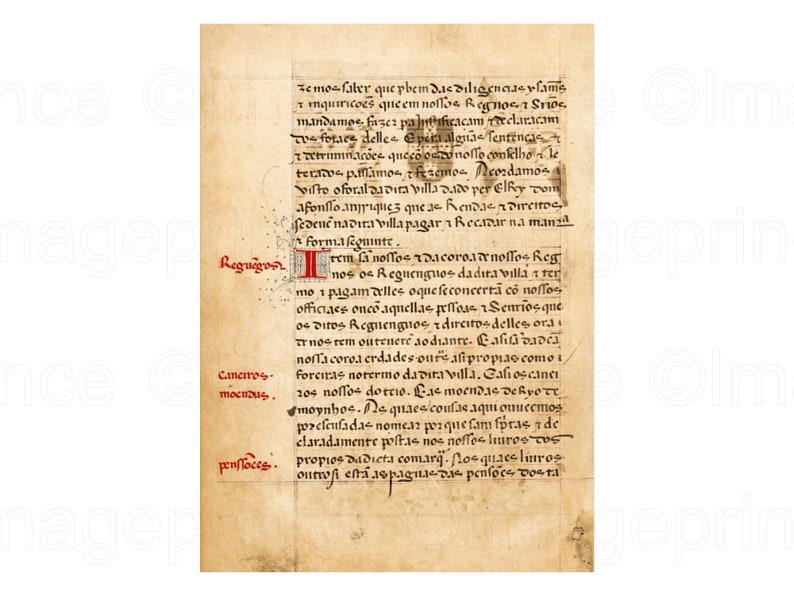 zemos saber que p bem das diligencias y sam̄s
⁊ inquiricoēs que em nossos Regnos ⁊ Srīos
mandamos fazer pa Justificacam ⁊ declaracam
dos foraes delles. E per alguas sentencas ⁊
⁊ determinacoēs que cō os do nosso conselho ⁊ le
terados passamos, ⁊ fezemos. Acordamos
visto o foral da dita villa dado per El Rey dom
afonsso anrriquez que as Rendas ⁊ direitos,
se deuē na dita villa pagar ⁊ Recadar na manra
⁊ forma seguinte.
Reguēgos
Item sā nossos ⁊ da coroa de nossos Reg
nos os Reguenguos da dita villa ⁊ ter
mo ⁊ pagam delles o que se concertā cō nossos
officiaes ou cō aquellas pessoas ⁊ Senrīos que
os ditos Reguenguos ⁊ direitos delles ora
de nos tem ou teuerē ao diante. E asi sā da dcā
nossa coroa erdades outs̄ asi propias como
foreiras no termo da dita villa. E asi os canei
caneiros.
ros nossos do teio. E as moendas de Ryo de
moendas.
moynhos. As quaes cousas aqui ouuemos
por escusadas nomear por que sam sprās ⁊ de
claradamente postas nos nossos liuros dos
propios da dicta comarq̄. Nos quaes liuros
penssoēes.
outrosi estā as paguas das pensoēs dos ta